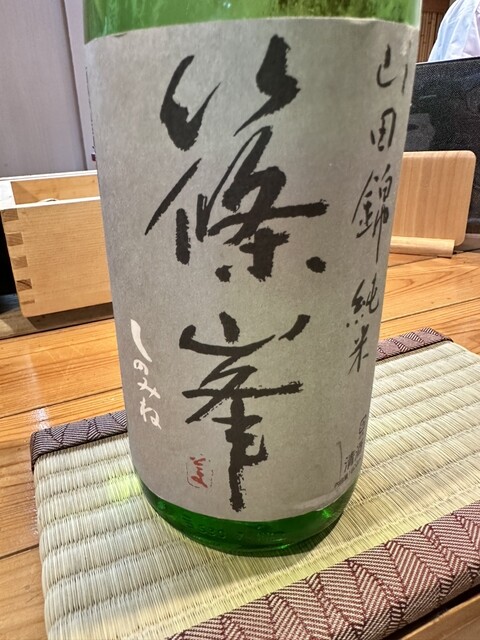 山田錦 純米
篠峯
しのみね
清酒